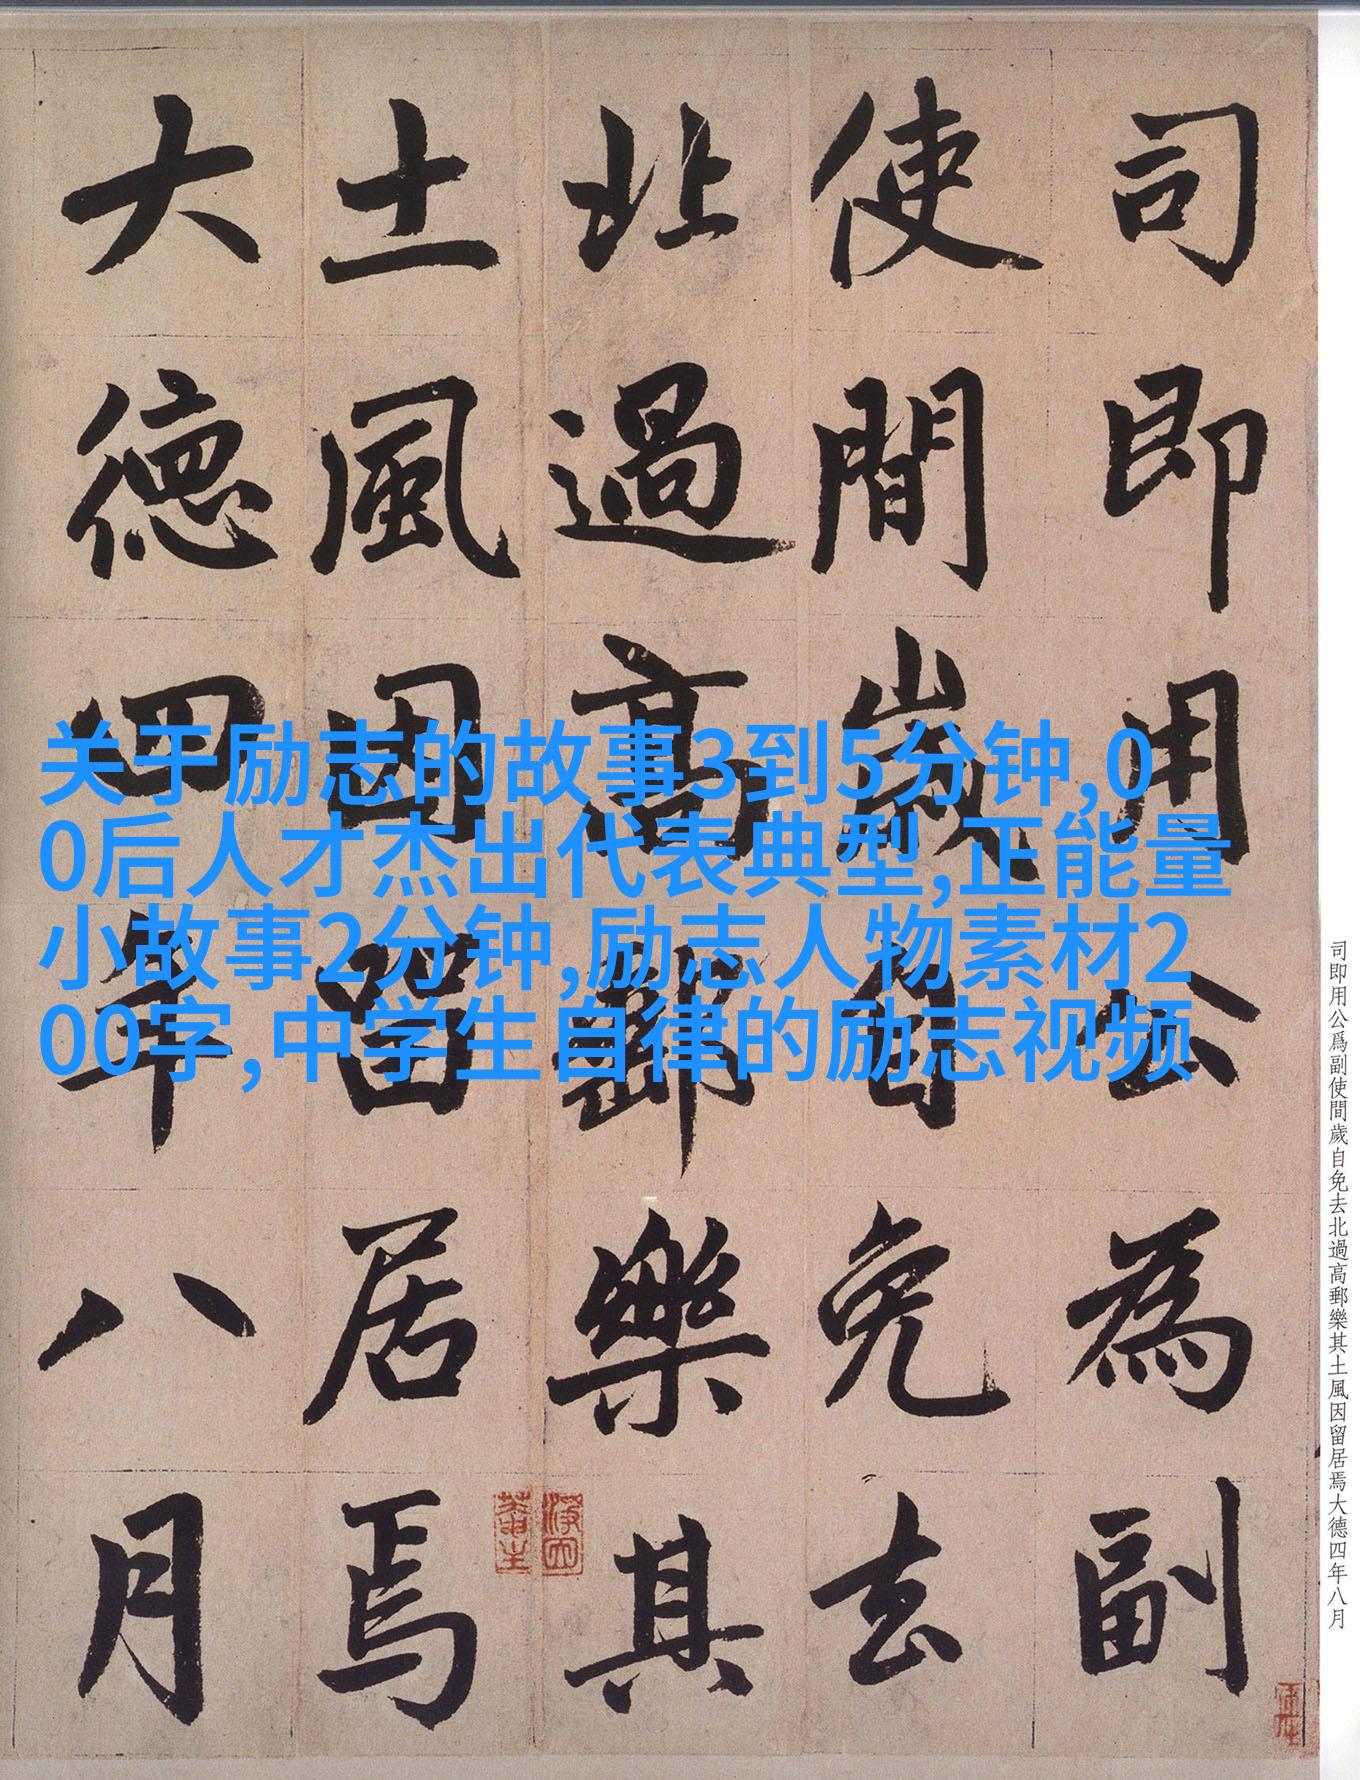 司即用公為副
使間歲自免去
北過高郵樂其
土風因留居焉
大德四年八月
关于励志的故事3到5分钟,0
0后人才杰出代表典型,正能量
小故事2分钟,励志人物素材2
00字,中学生自律的励志视频
司即用公爲副使間歲自免去北過高郵樂其土風因留居焉大德四年八月